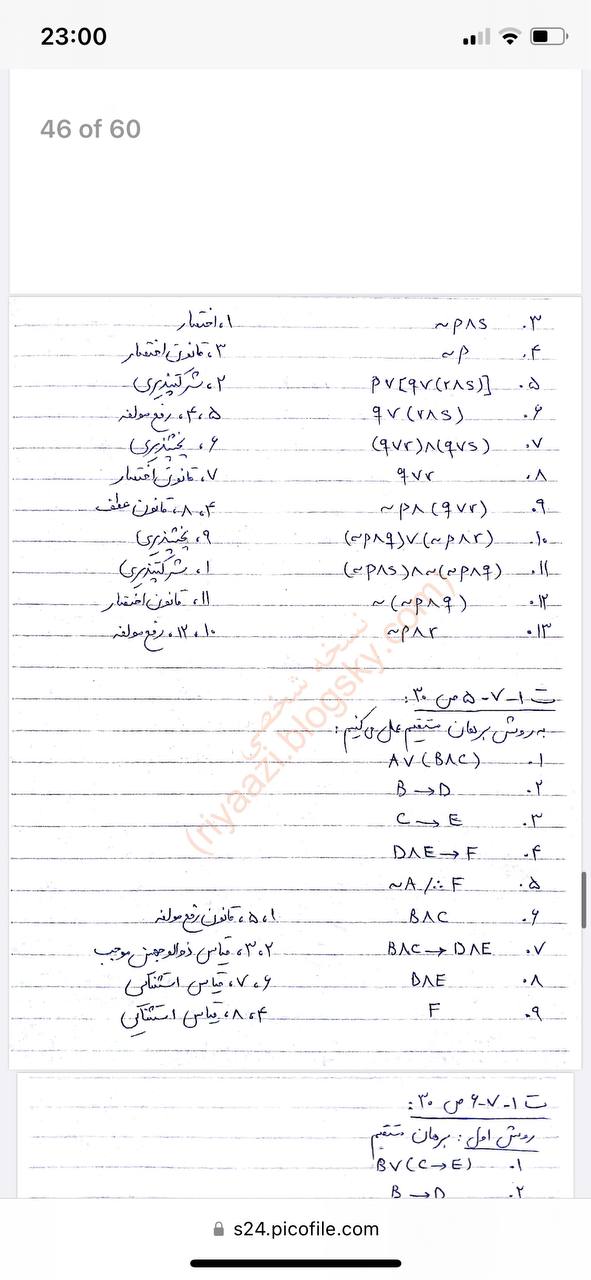 23:00
46 of 60
۳. ~p∧s ۱، اختصار
۴. ~p ۳، قانون اختصار
۵. p∨[q∨(r∧s)] ۲، شرکتپذیری
۶. q∨(r∧s) ۴،۵، رفع مولفه
۷. (q∨r)∧(q∨s) ۶، پخشپذیری
۸. q∨r ۷، قانون اختصار
۹. ~p∧(q∨r) ۴،۸، قانون عطف
۱۰. (~p∧q)∨(~p∧r) ۹، پخشپذیری
۱۱. (~p∧s)∧~(~p∧q) ۱، شرکتپذیری
۱۲. ~(~p∧q) ۱۱، قانون اختصار
۱۳. ~p∧r ۱۰، ۱۲، رفع مولفه
ت ۱-۷-۵ ص ۳۰:
به روش برهان مستقیم عمل می‌کنیم:
۱. A∨(B∧C)
۲. B→D
۳. C→E
۴. D∧E→F
۵. ~A /∴ F
۶. B∧C ۱،۵، قانون رفع مولفه
۷. B∧C→D∧E ۲،۳، قیاس ذوالوجهین موجب
۸. D∧E ۶،۷، قیاس استثنائی
۹. F ۴،۸، قیاس استثنائی
نسخه شخصی
(riyaazi.blogsky.com)
ت ۱-۷-۶ ص ۳۰:
روش اول: برهان مستقیم
۱. B∨(C→E)
۲. B→D
s24.picofile.com